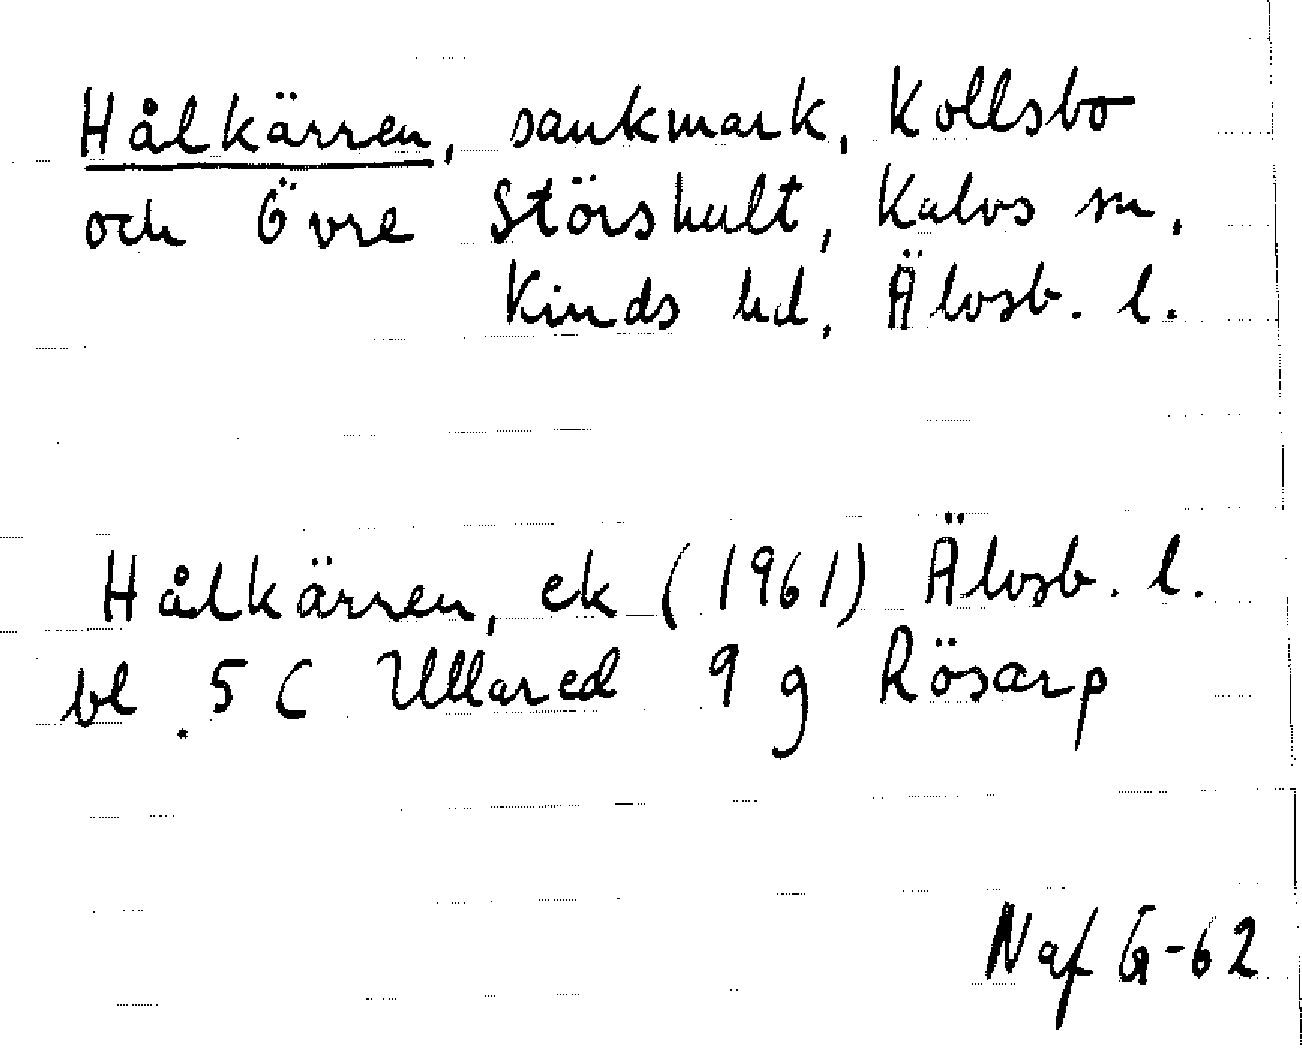 Hålkärren, sankmark, Kollsbo
och Övre Störshult, Kalvs sn,
Kinds hd, Älvsb. l.
Hålkärren, ek (1961) Älvsb. l.
bl. 5C Ullared 9g Rösarp
Naf G-62